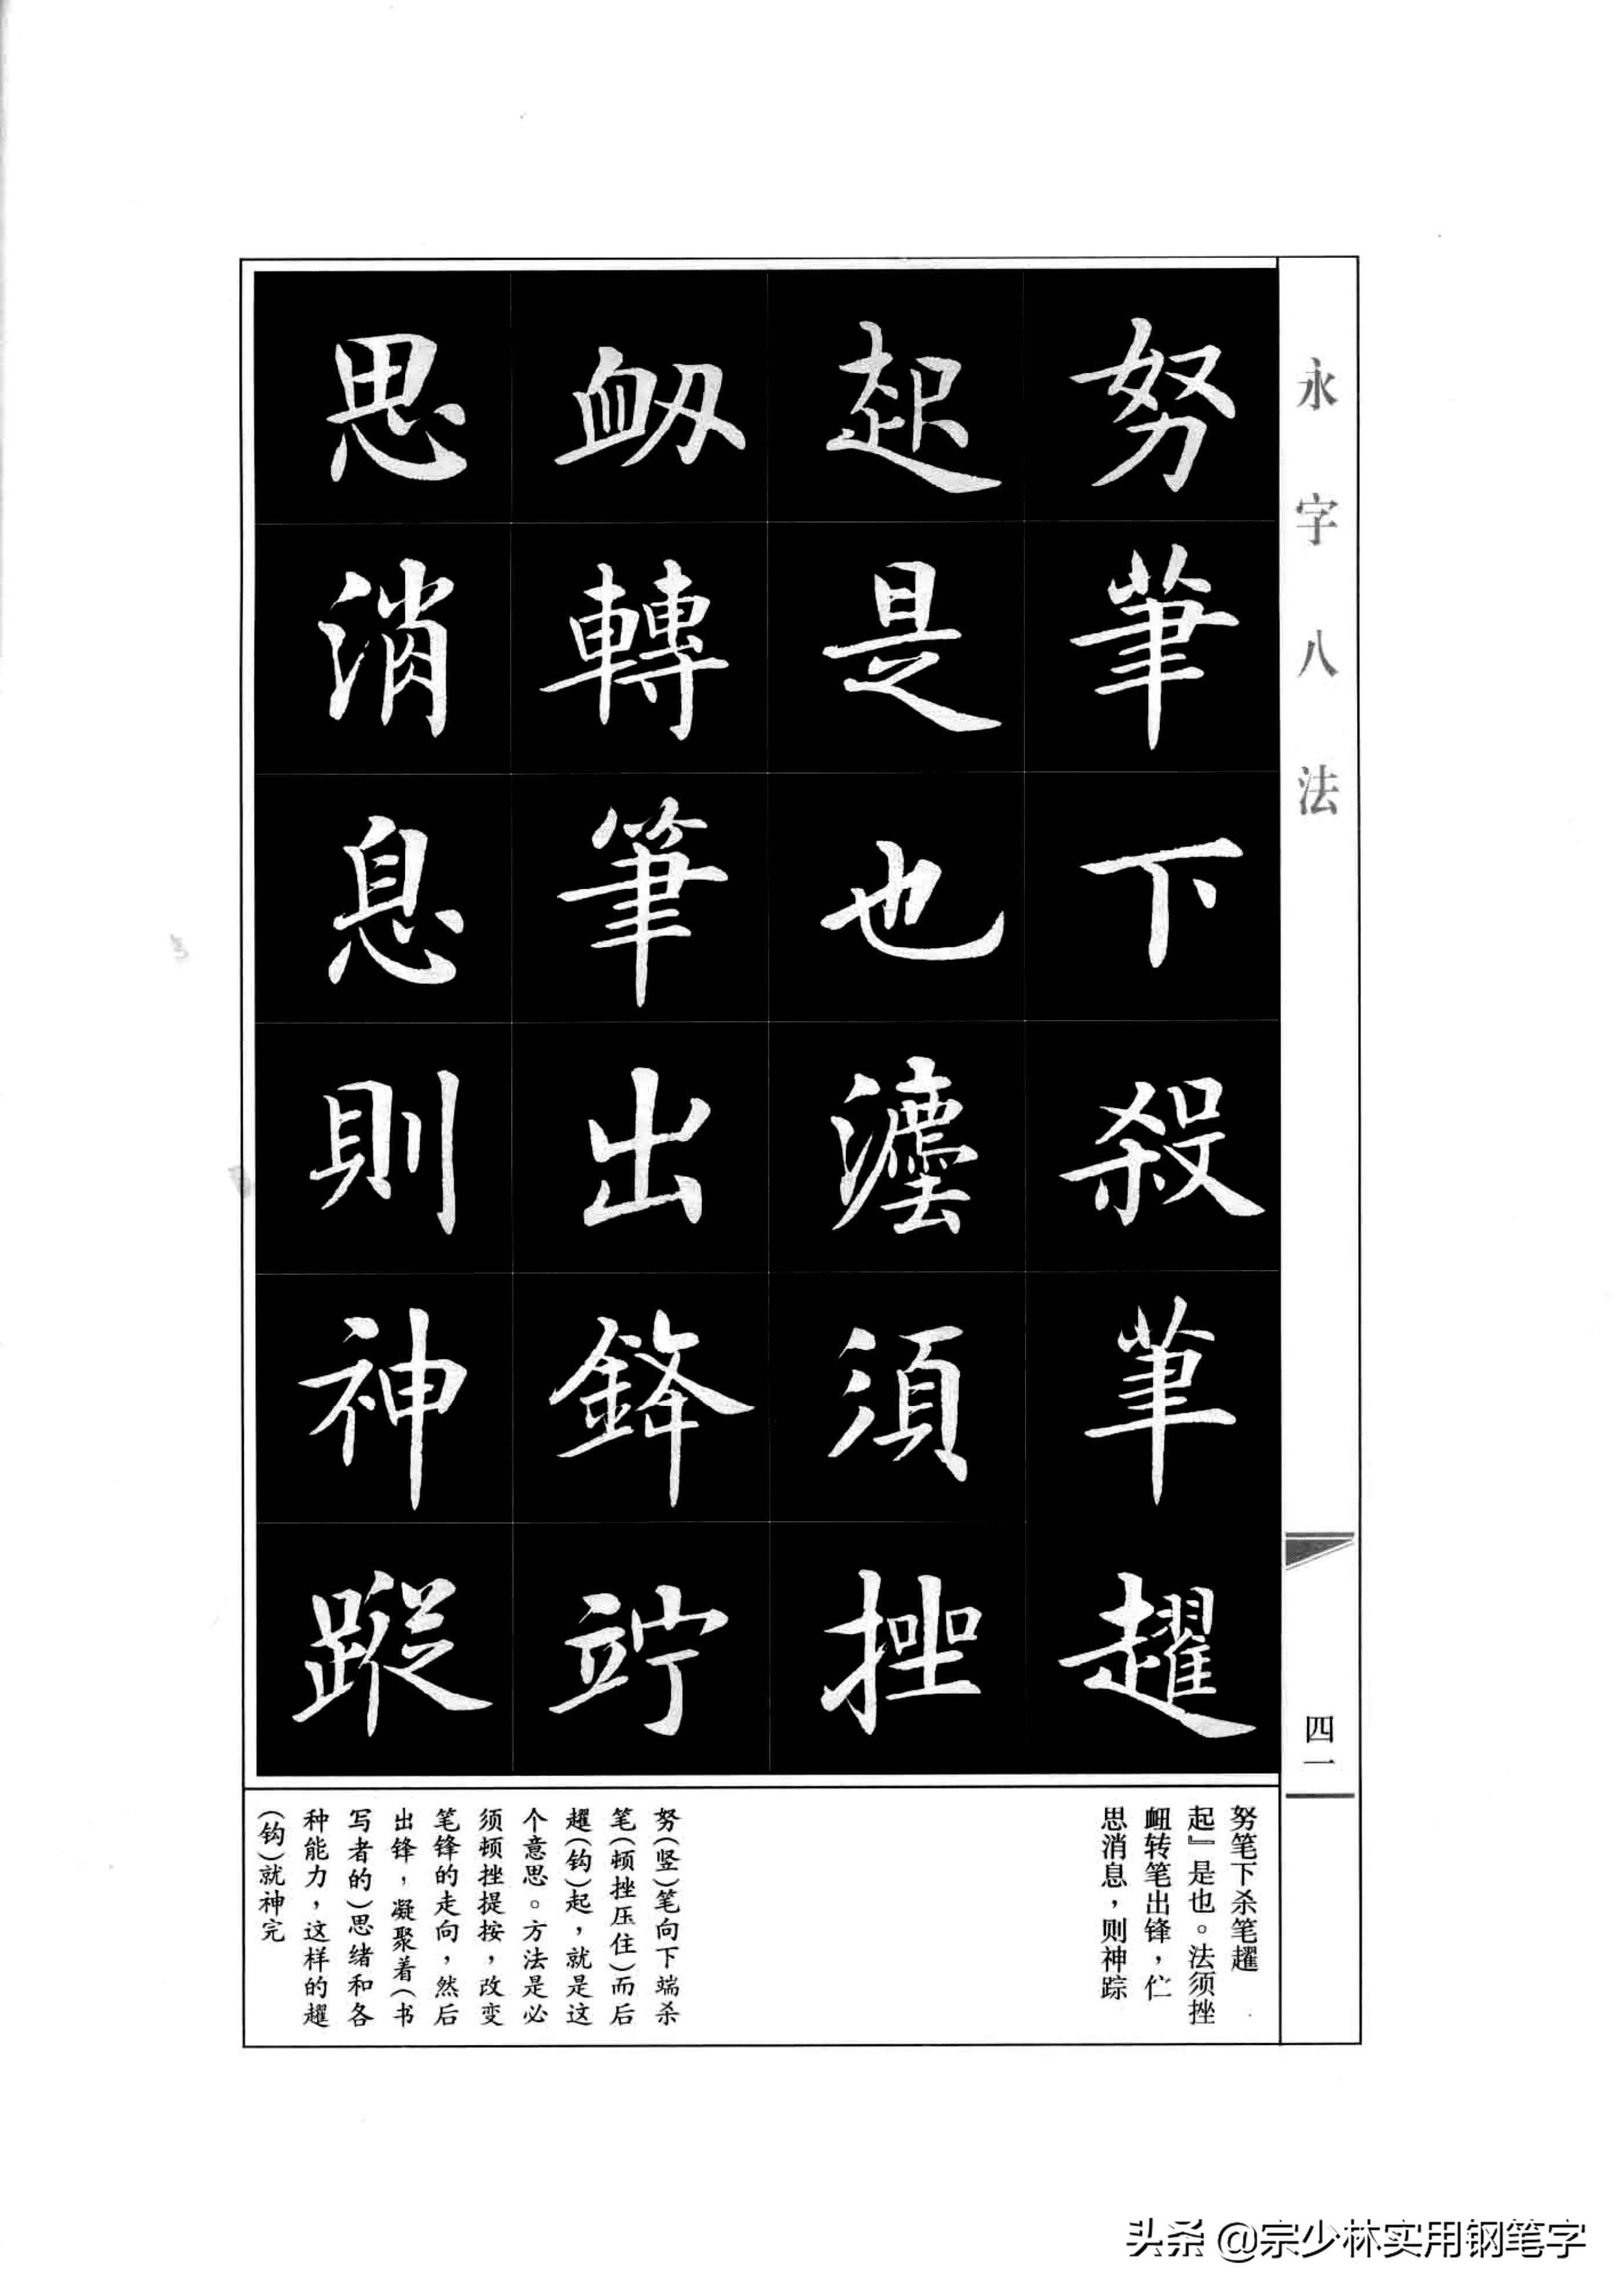 永字八法
四一
努筆下殺筆趯
起是也灋須挫
衂轉筆出鋒竚
思消息則神蹤
努笔下杀笔趯
起』是也。法须挫
衄转笔出锋，伫
思消息，则神踪
努(竖)笔向下端杀
笔(顿挫压住)而后
趯(钩)起，就是这
个意思。方法是必
须顿挫提按，改变
笔锋的走向，然后
出锋，凝聚着(书
写者的)思绪和各
种能力，这样的趯
(钩)就神完
头条 @宗少林实用钢笔字